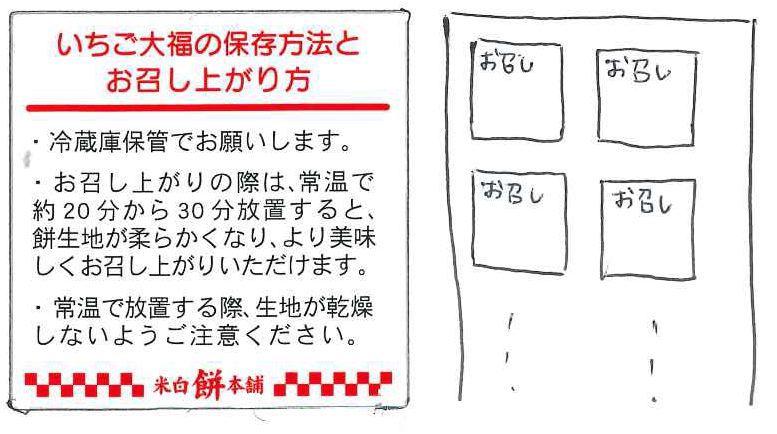 いちご大福の保存方法と
お召し上がり方
・冷蔵庫保管でお願いします。
・お召し上がりの際は、常温で
約20分から30分放置すると、
餅生地が柔らかくなり、より美味
しくお召し上がりいただけます。
・常温で放置する際、生地が乾燥
しないようご注意ください。
米白餅本舗
お召し
お召し
お召し
お召し